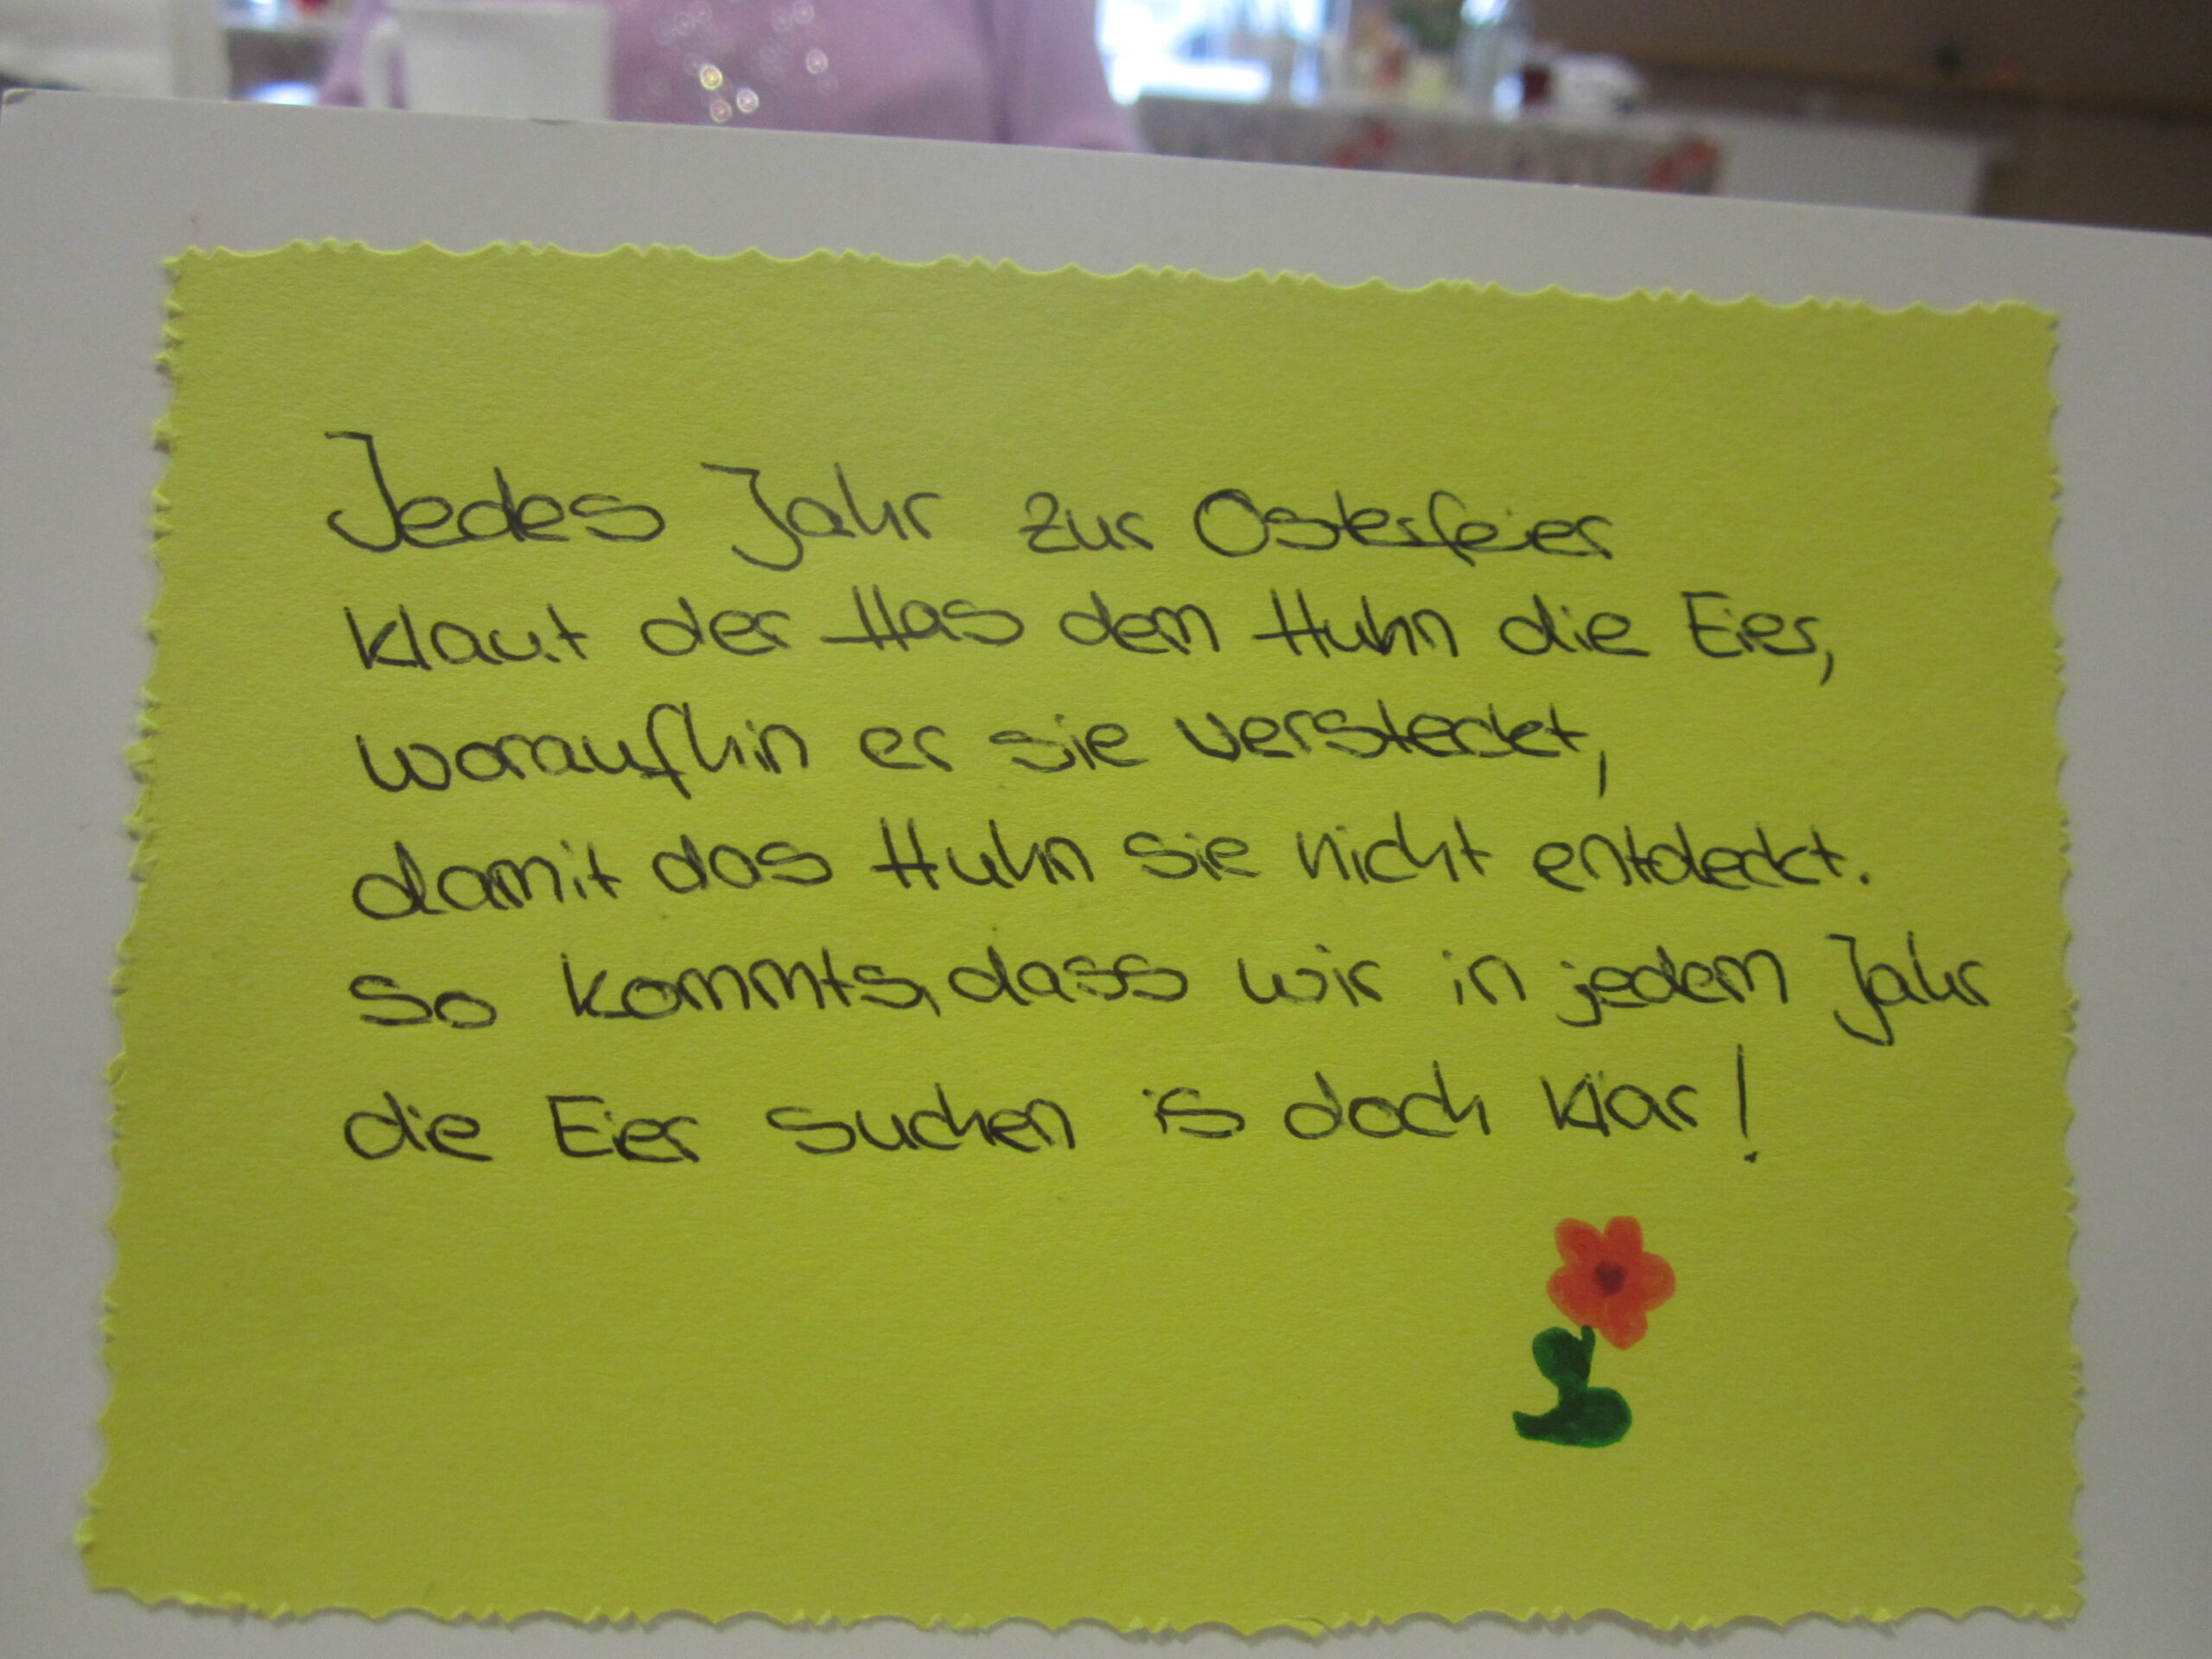 Jedes Jahr zur Osterfeier
klaut der Has dem Huhn die Eier,
woraufhin er sie versteckt,
damit das Huhn sie nicht entdeckt.
So kommts, dass wir in jedem Jahr
die Eier suchen is doch klar!